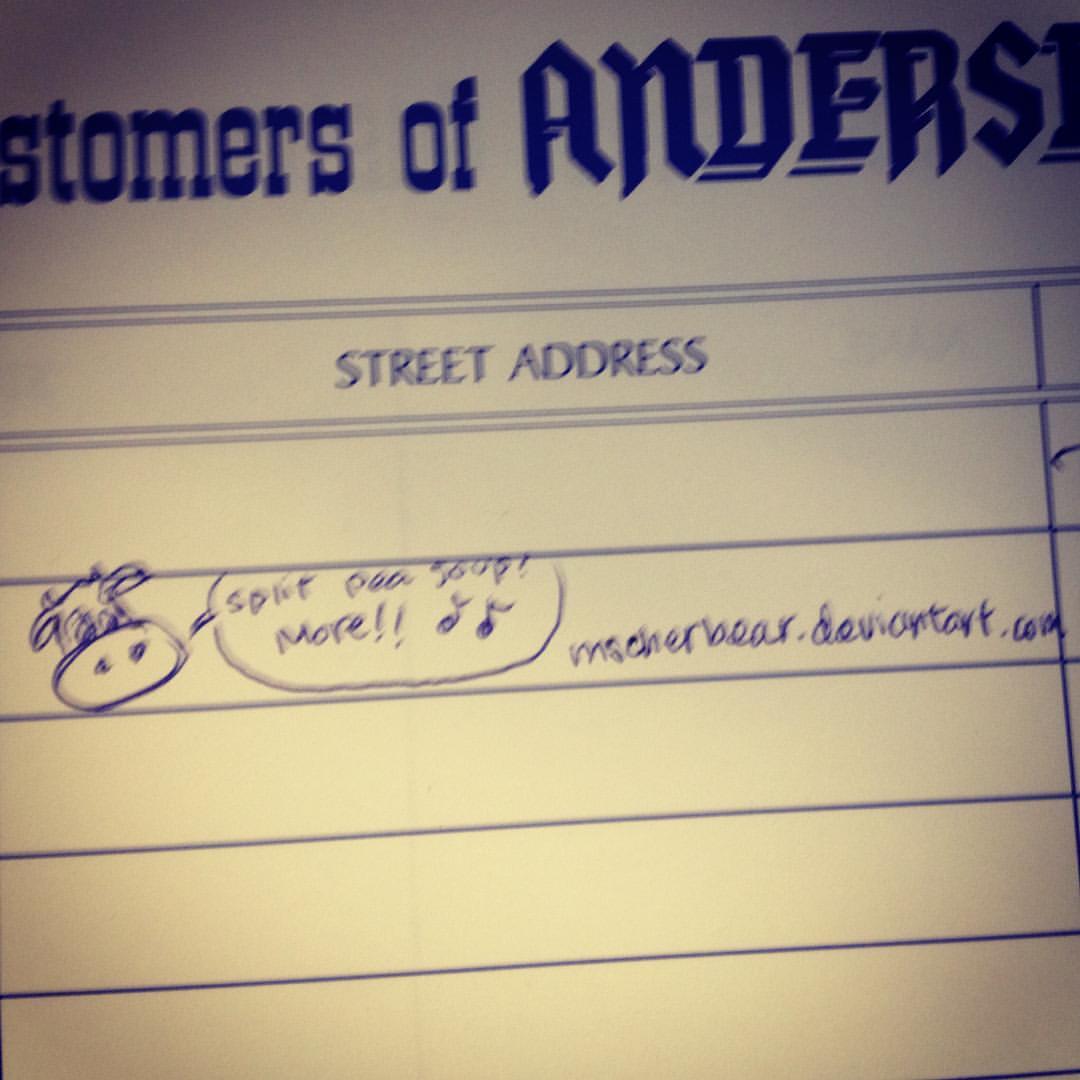 stomers of ANDERS
STREET ADDRESS
split pea soup!
More!!
mscherbear.deviantart.com